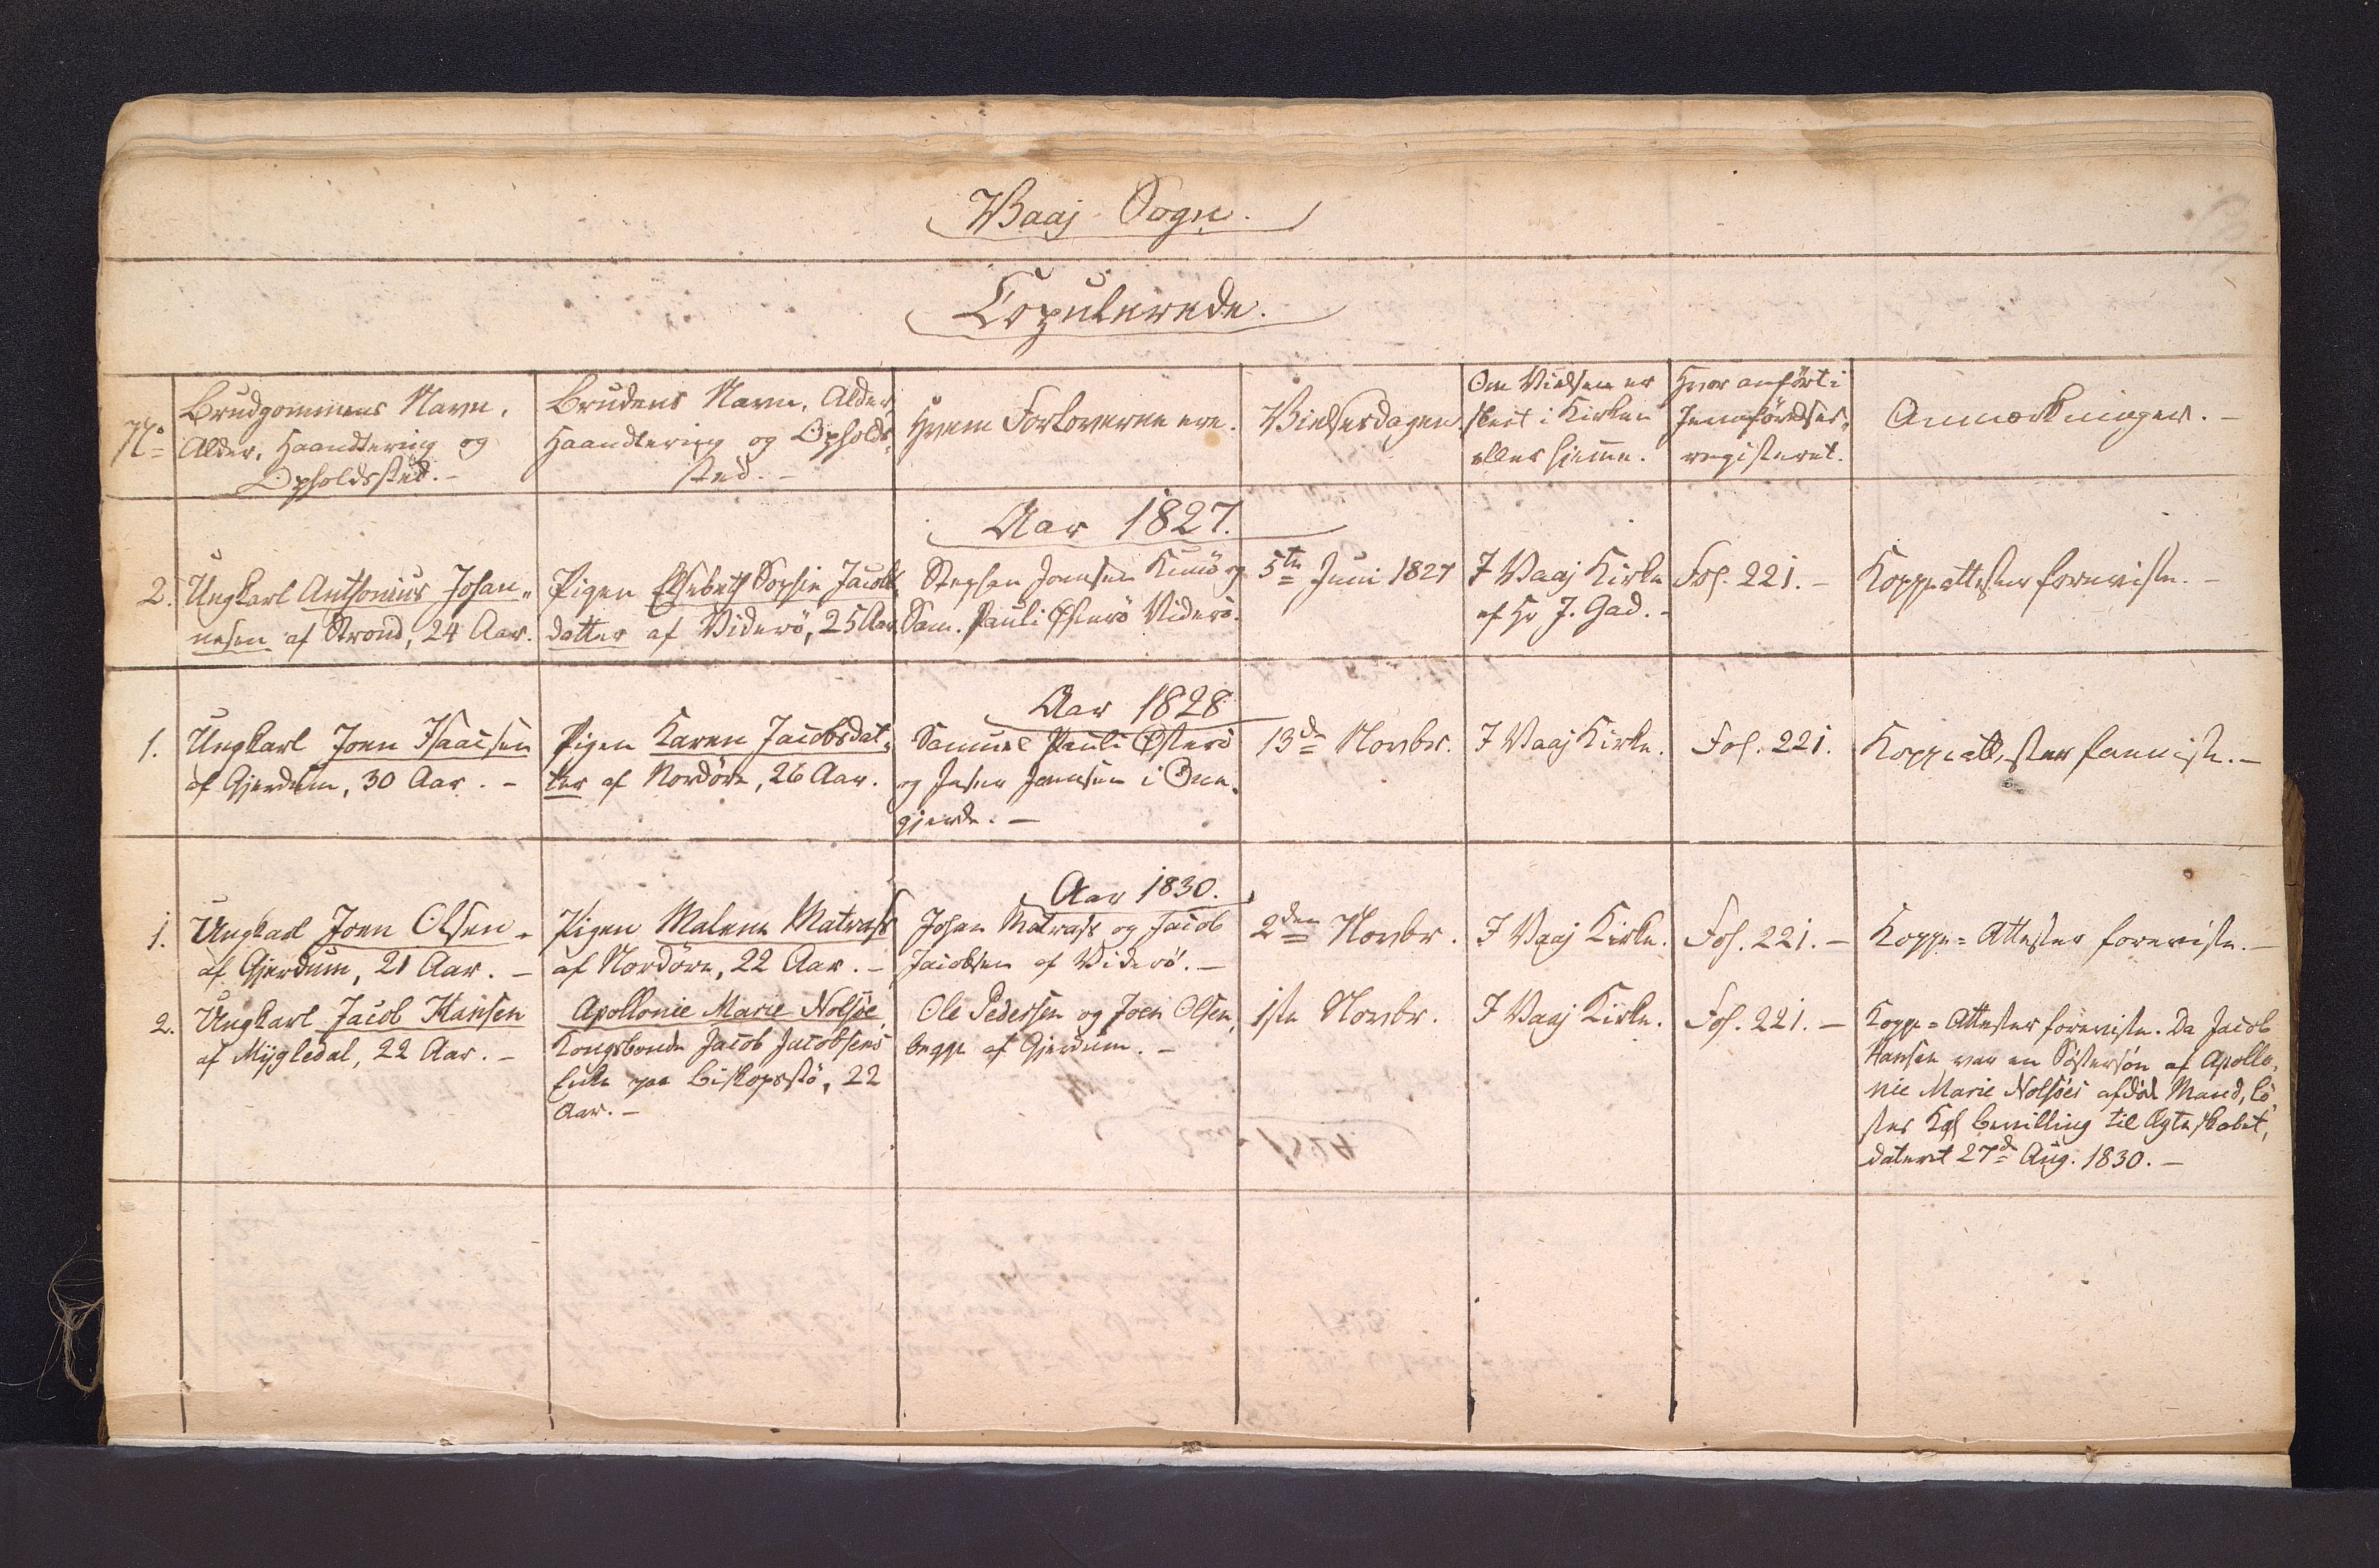 Waaj Sogn.
Copulerede.
No
Brudgommens Navn,
Alder, Haandtering og
Opholdssted. -
Brudens Navn, Alder,
Haandtering og Opholds-
sted. -
Hvem Forloverne ere.
Vielsesdagen.
Om Vielsen er
skeet i Kirken
eller hjemme.
Hvor anført i
Jevnførelses-
registeret.
Anmærkninger. -
Aar 1827.
2.
Ungkarl Anthonius Johan-
nesen af Strond, 24 Aar.
Pigen Elsebeth Sophie Jacobs-
datter af Viderö, 25 Aar.
Stephan Joensen Kunö og
Sam. Pauli Østerö Viderö.
5te Juni 1827
I Waaj Kirke
af Hr J. Gad. -
Fol. 221. -
Koppeattester foreviste. -
Aar 1828
1.
Ungkarl Joen Isaacsen
af Gjerdum, 30 Aar. -
Pigen Karen Jacobsdat-
ter af Nordöre, 26 Aar.
Samuel Pauli Østerö
og Joensen i One-
gjerde. -
13de Novbr.
I Waaj Kirke.
Fol. 221.
Koppeattester foreviste. -
Aar 1830.
1.
Ungkarl Joen Olsen
af Gjerdum, 21 Aar. -
Pigen Malene Matrass
af Nordöre, 22 Aar. -
Johan Matrass og Jacob
Jacobsen af Viderö. -
2den Novbr.
I Vaaj Kirke.
Fol. 221. -
Koppe-Attester foreviste. -
2.
Ungkarl Jacob Hansen
af Mygledal, 22 Aar. -
Apollonie Marie Nolsöe
Kongsbonde Jacob Jacobsens
Enke paa Biskopsstö, 22
Aar. -
Ole Pedersen og Joen Olsen,
begge af Gjerdum. -
1ste Novbr.
I Vaaj Kirke.
Fol. 221. -
Koppe-Attester foreviste. Da Jacob
Hansen var en Söstersön af Apollo-
nie Marie Nolsöes afdöde Mand, lö-
stes Kgl Bevilling til Ægteskabet,
dateret 27de Aug. 1830. -